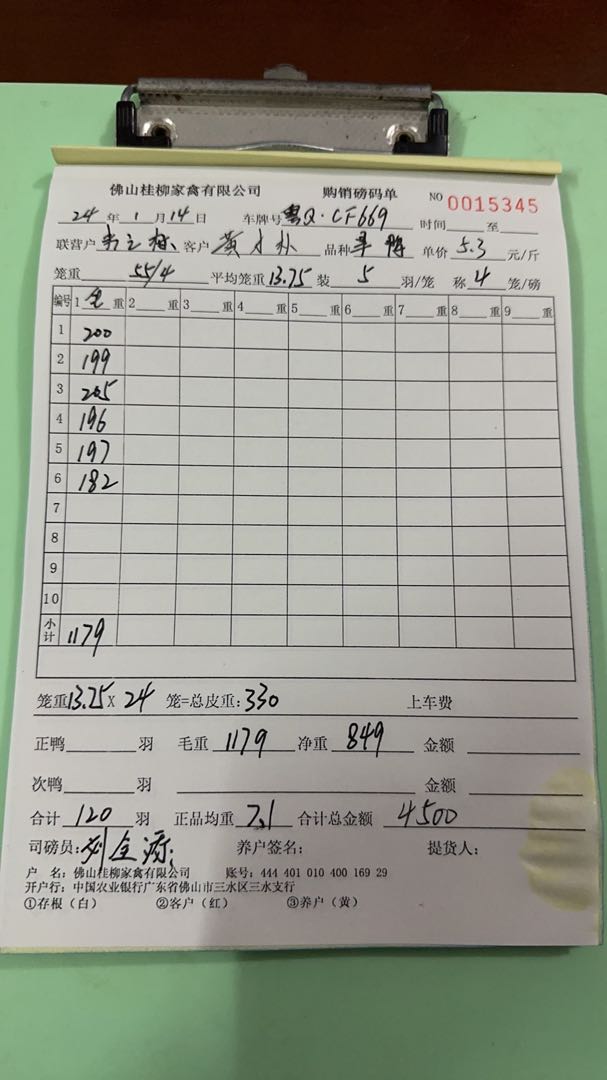 佛山桂柳家禽有限公司 购销磅码单 NO 0015345
24 年 1 月 14 日 车牌号 粤Q·CF669 时间 至
联营户 客户 黄 品种 单价 5.3 元/斤
笼重 55/4 平均笼重 13.75 装 5 羽/笼 称 4 笼/磅
编号 1 毛 重 2 重 3 重 4 重 5 重 6 重 7 重 8 重 9 重
1 200
2 199
3 205
4 196
5 197
6 182
7
8
9
10
小计 1179
笼重 13.75 X 24 笼=总皮重: 330 上车费
正鸭 羽 毛重 1179 净重 849 金额
次鸭 羽 金额
合计 120 羽 正品均重 7.1 合计总金额 4500
司磅员: 养户签名: 提货人:
户 名: 佛山桂柳家禽有限公司 账号: 444 401 010 400 169 29
开户行: 中国农业银行广东省佛山市三水区三水支行
①存根（白） ②客户（红） ③养户（黄）